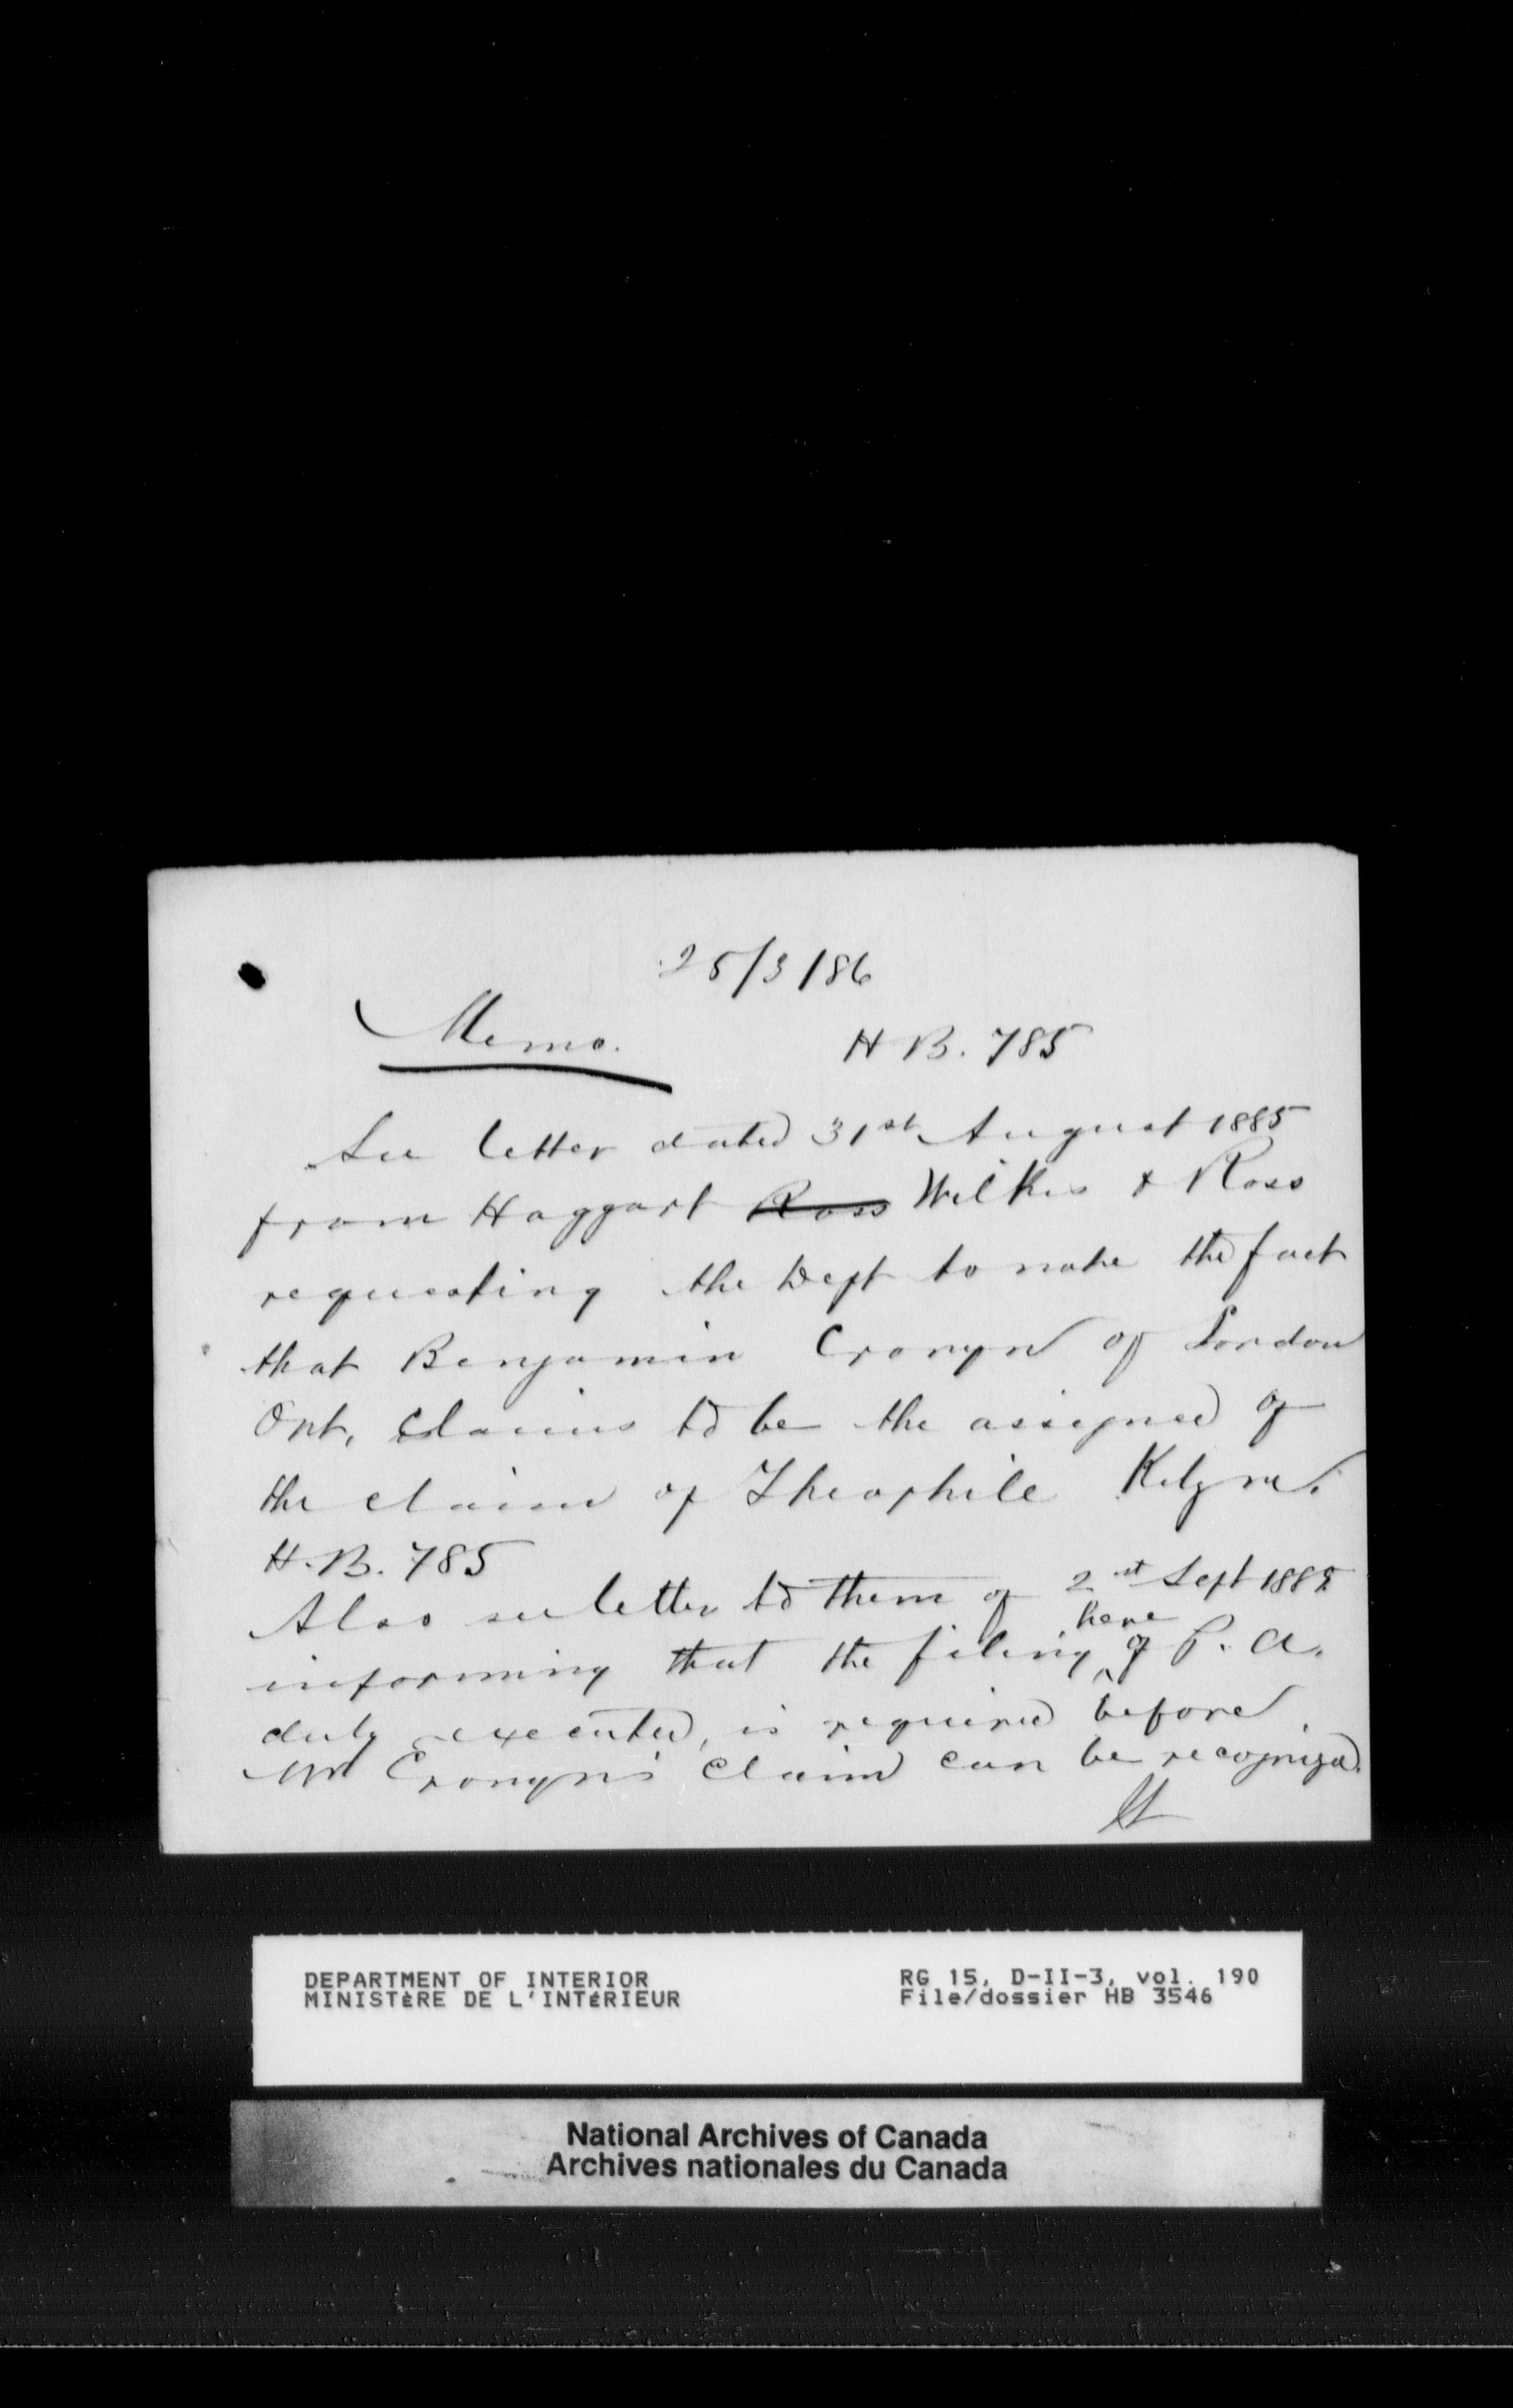 25/3/86
Memo.
H B. 785
See letter dated 31st August 1885
from Haggart Ross Wilkes & Ross
requesting the Dept to note the fact
that Benjamin Cronyn of London
Ont, claims to be the assignee of
the claim of Theophile
H.B. 785
Also see letter to them of 2 Sept
informing that the filing here of P. A.
duly executed, is required before
Mr Cronyn's claim can be recognized.
DEPARTMENT OF INTERIOR
MINISTÈRE DE L'INTÉRIEUR
RG 15, D-II-3, vol. 190
File/dossier HB 3546
National Archives of Canada
Archives nationales du Canada